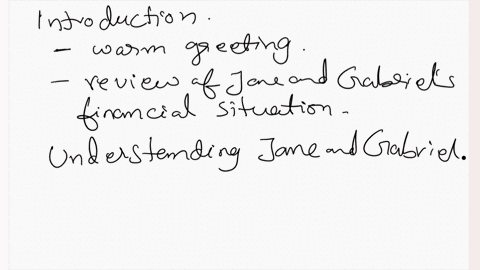 Introduction.
- warm greeting.
- review of Jane and Gabriel's
financial situation.
Understanding Jane and Gabriel.